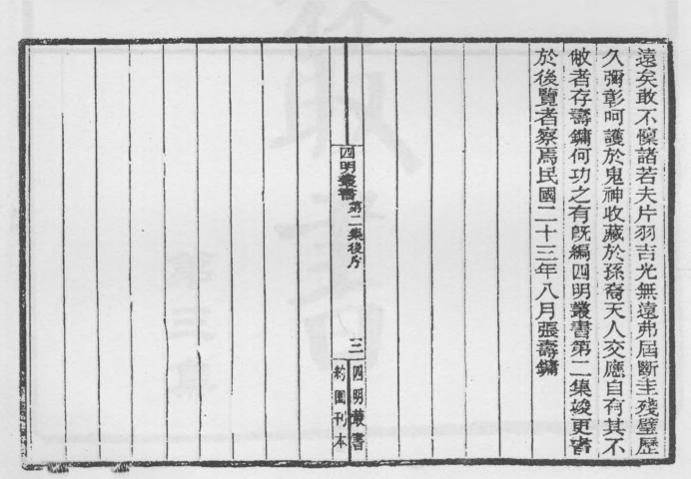 遠矣敢不懍諸若夫片羽吉光無遠弗屆斷圭殘璧歷
久彌彰呵護於鬼神收藏於孫裔天人交應自有其不
敝者存壽鏞何功之有旣編四明叢書第二集竣更書
於後覽者察焉民國二十三年八月張壽鏞
四明叢書
第二集後序
三
四明叢書
約園刊本
第三集